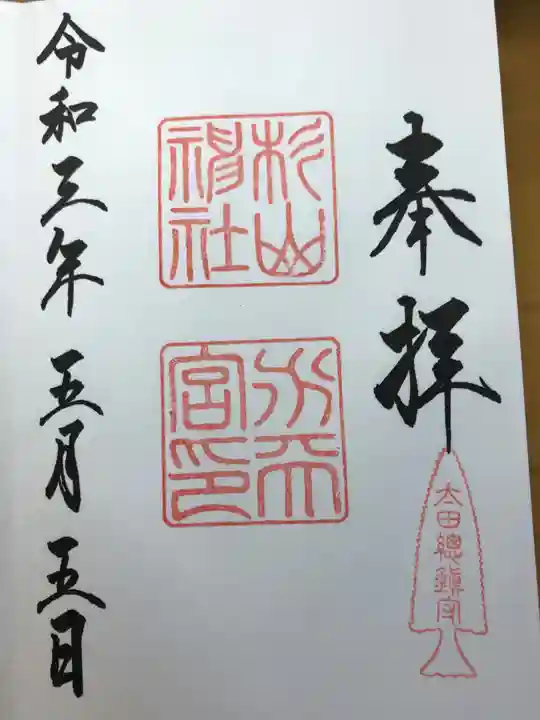 奉拝
太田總鎮守
杉山
神社
宮印
令和三年 五月 五日